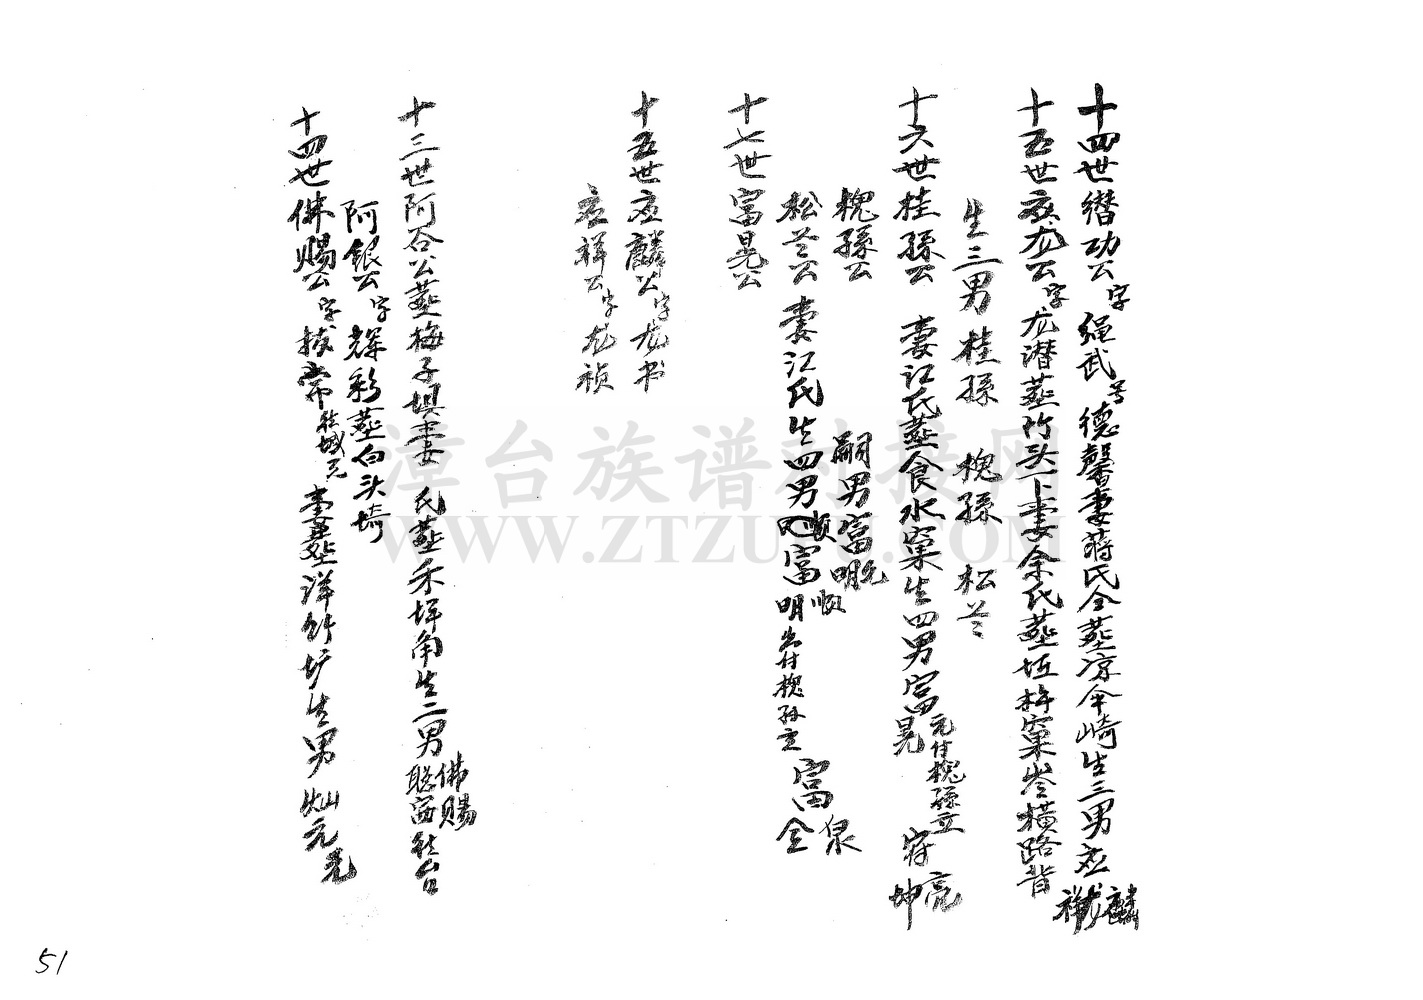 十四世缵功公字绳武号德馨妻蒋氏仝葬凉伞崎生三男应麟龙祥
十五世应龙公字龙潜葬竹头下妻余氏葬坵桙窠岽横路背
生三男桂孫 槐孫 松兰
十六世桂孫公 妻江氏葬食水窠生四男富晃元付槐孫立亮坤
槐孫公 嗣男富明元
松兰公 妻江氏生四男富顺明出付槐孙立富泉全
十七世富晃公
十五世应麟公字龙书
应祥公字龙祯
十三世阿谷公葬梅子垻妻 氏葬禾坪角生二男佛賜聪往台
阿银公字辉彩葬白头崎
十四世佛賜公字拔常妻葬洋竹垆生男灿元光
漳台族谱对接网
WWW.ZTZUPU.COM
51